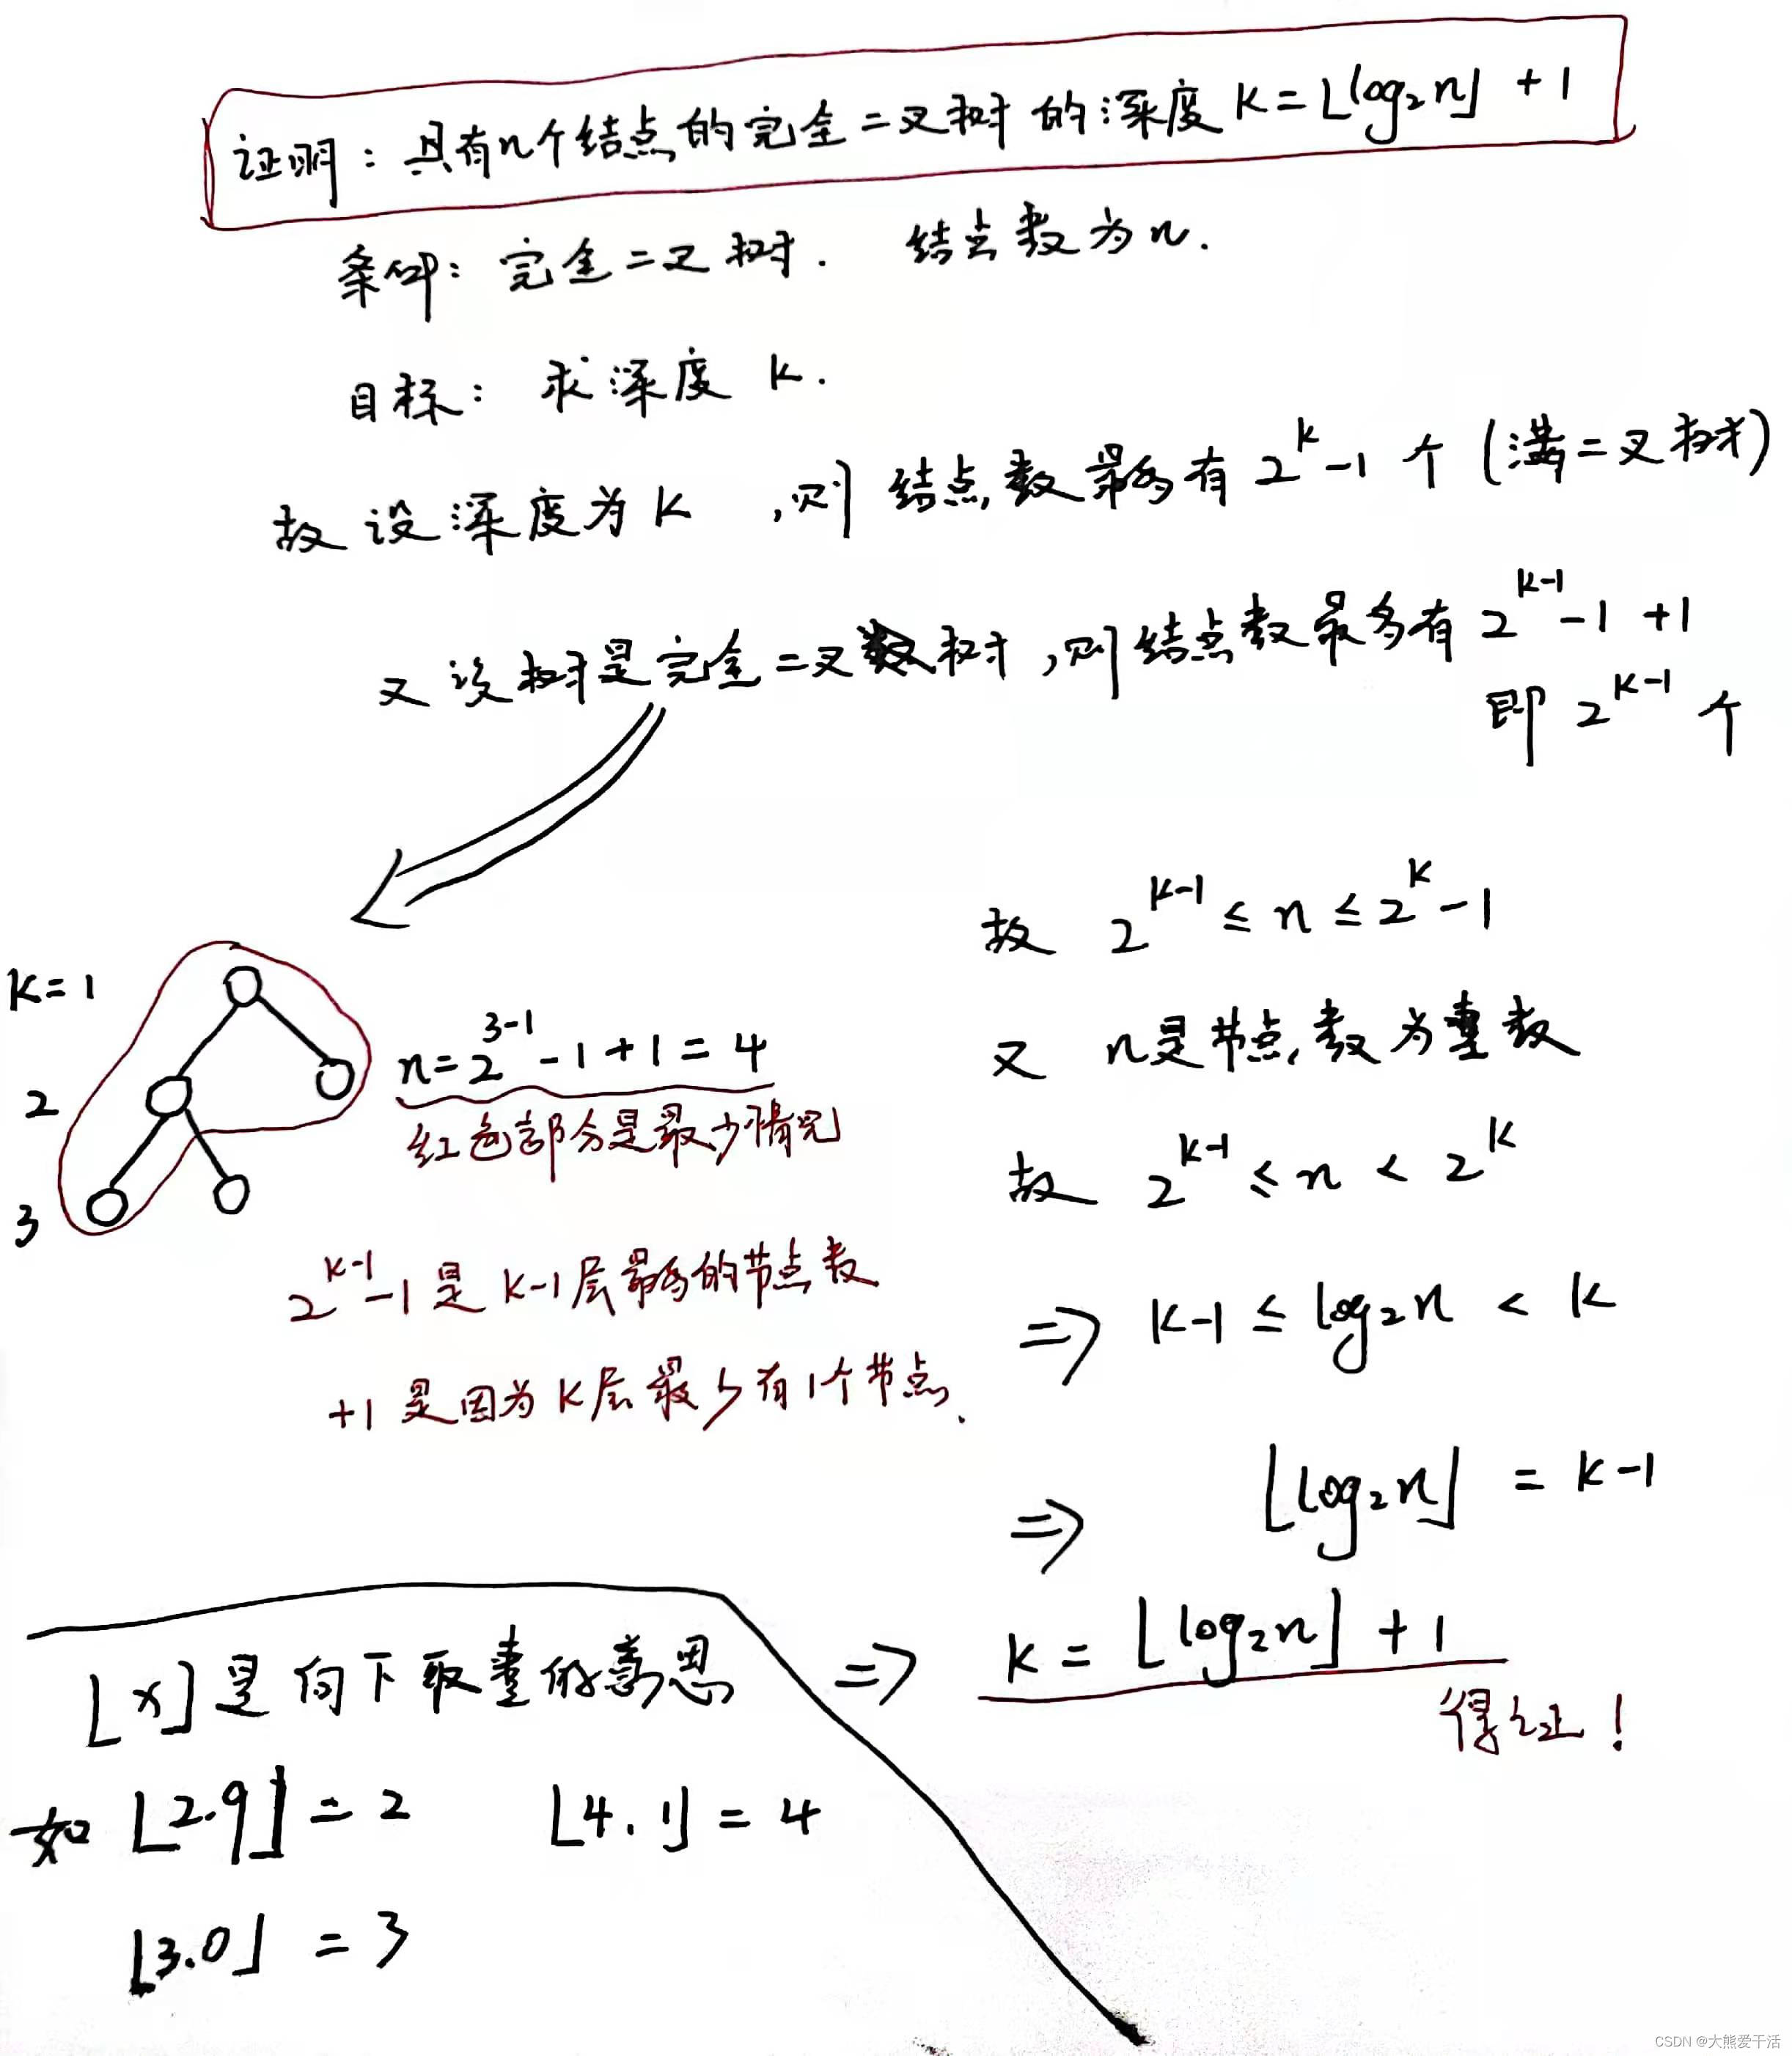 证明：具有n个结点的完全二叉树的深度 K = ⌊log₂n⌋ + 1
条件：完全二叉树. 结点数为n.
目标：求深度 K.
故设深度为K，则结点数最多有 2^K-1 个 (满二叉树)
又设树是完全二叉树，则结点数最多有 2^(K-1)-1+1
即 2^(K-1) 个
K=1
2
3
n=2^(3-1)-1+1=4
红色部分是最少情况
2^(K-1)-1是K-1层最多的节点数
+1是因为K层最少有1个节点.
故 2^(K-1) ≤ n ≤ 2^K-1
又 n是节点数为整数
故 2^(K-1) ≤ n < 2^K
⇒ K-1 ≤ log₂n < K
⇒ ⌊log₂n⌋ = K-1
⇒ K = ⌊log₂n⌋ + 1
得证！
⌊x⌋是向下取整的意思
如 ⌊2.9⌋ = 2 ⌊4.1⌋ = 4
⌊3.0⌋ = 3
CSDN @大熊爱干活